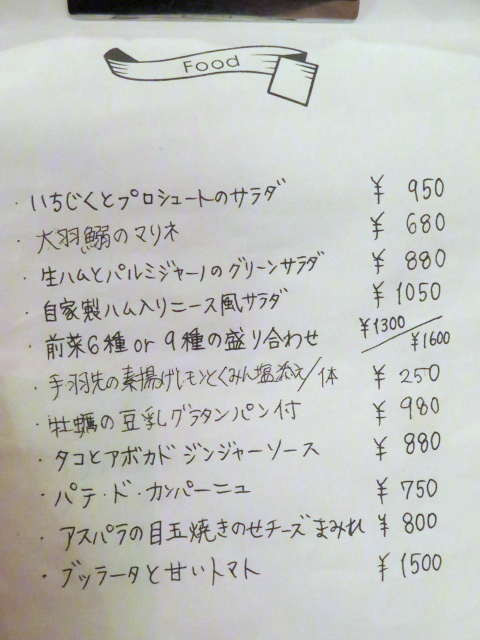 Food
・いちじくとプロシュートのサラダ ¥ 950
・大羽鰯のマリネ ¥ 680
・生ハムとパルミジャーノのグリーンサラダ ¥ 880
・自家製ハム入りニース風サラダ ¥ 1050
・前菜6種or 9種の盛り合わせ ¥1300/¥1600
・手羽先の素揚げレモンとくみん塩添え/1本 ¥ 250
・牡蠣の豆乳グラタンパン付 ¥ 980
・タコとアボカド ジンジャーソース ¥ 880
・パテ・ド・カンパーニュ ¥ 750
・アスパラの目玉焼きのせチーズまみれ ¥ 800
・ブッラータと甘いトマト ¥ 1500